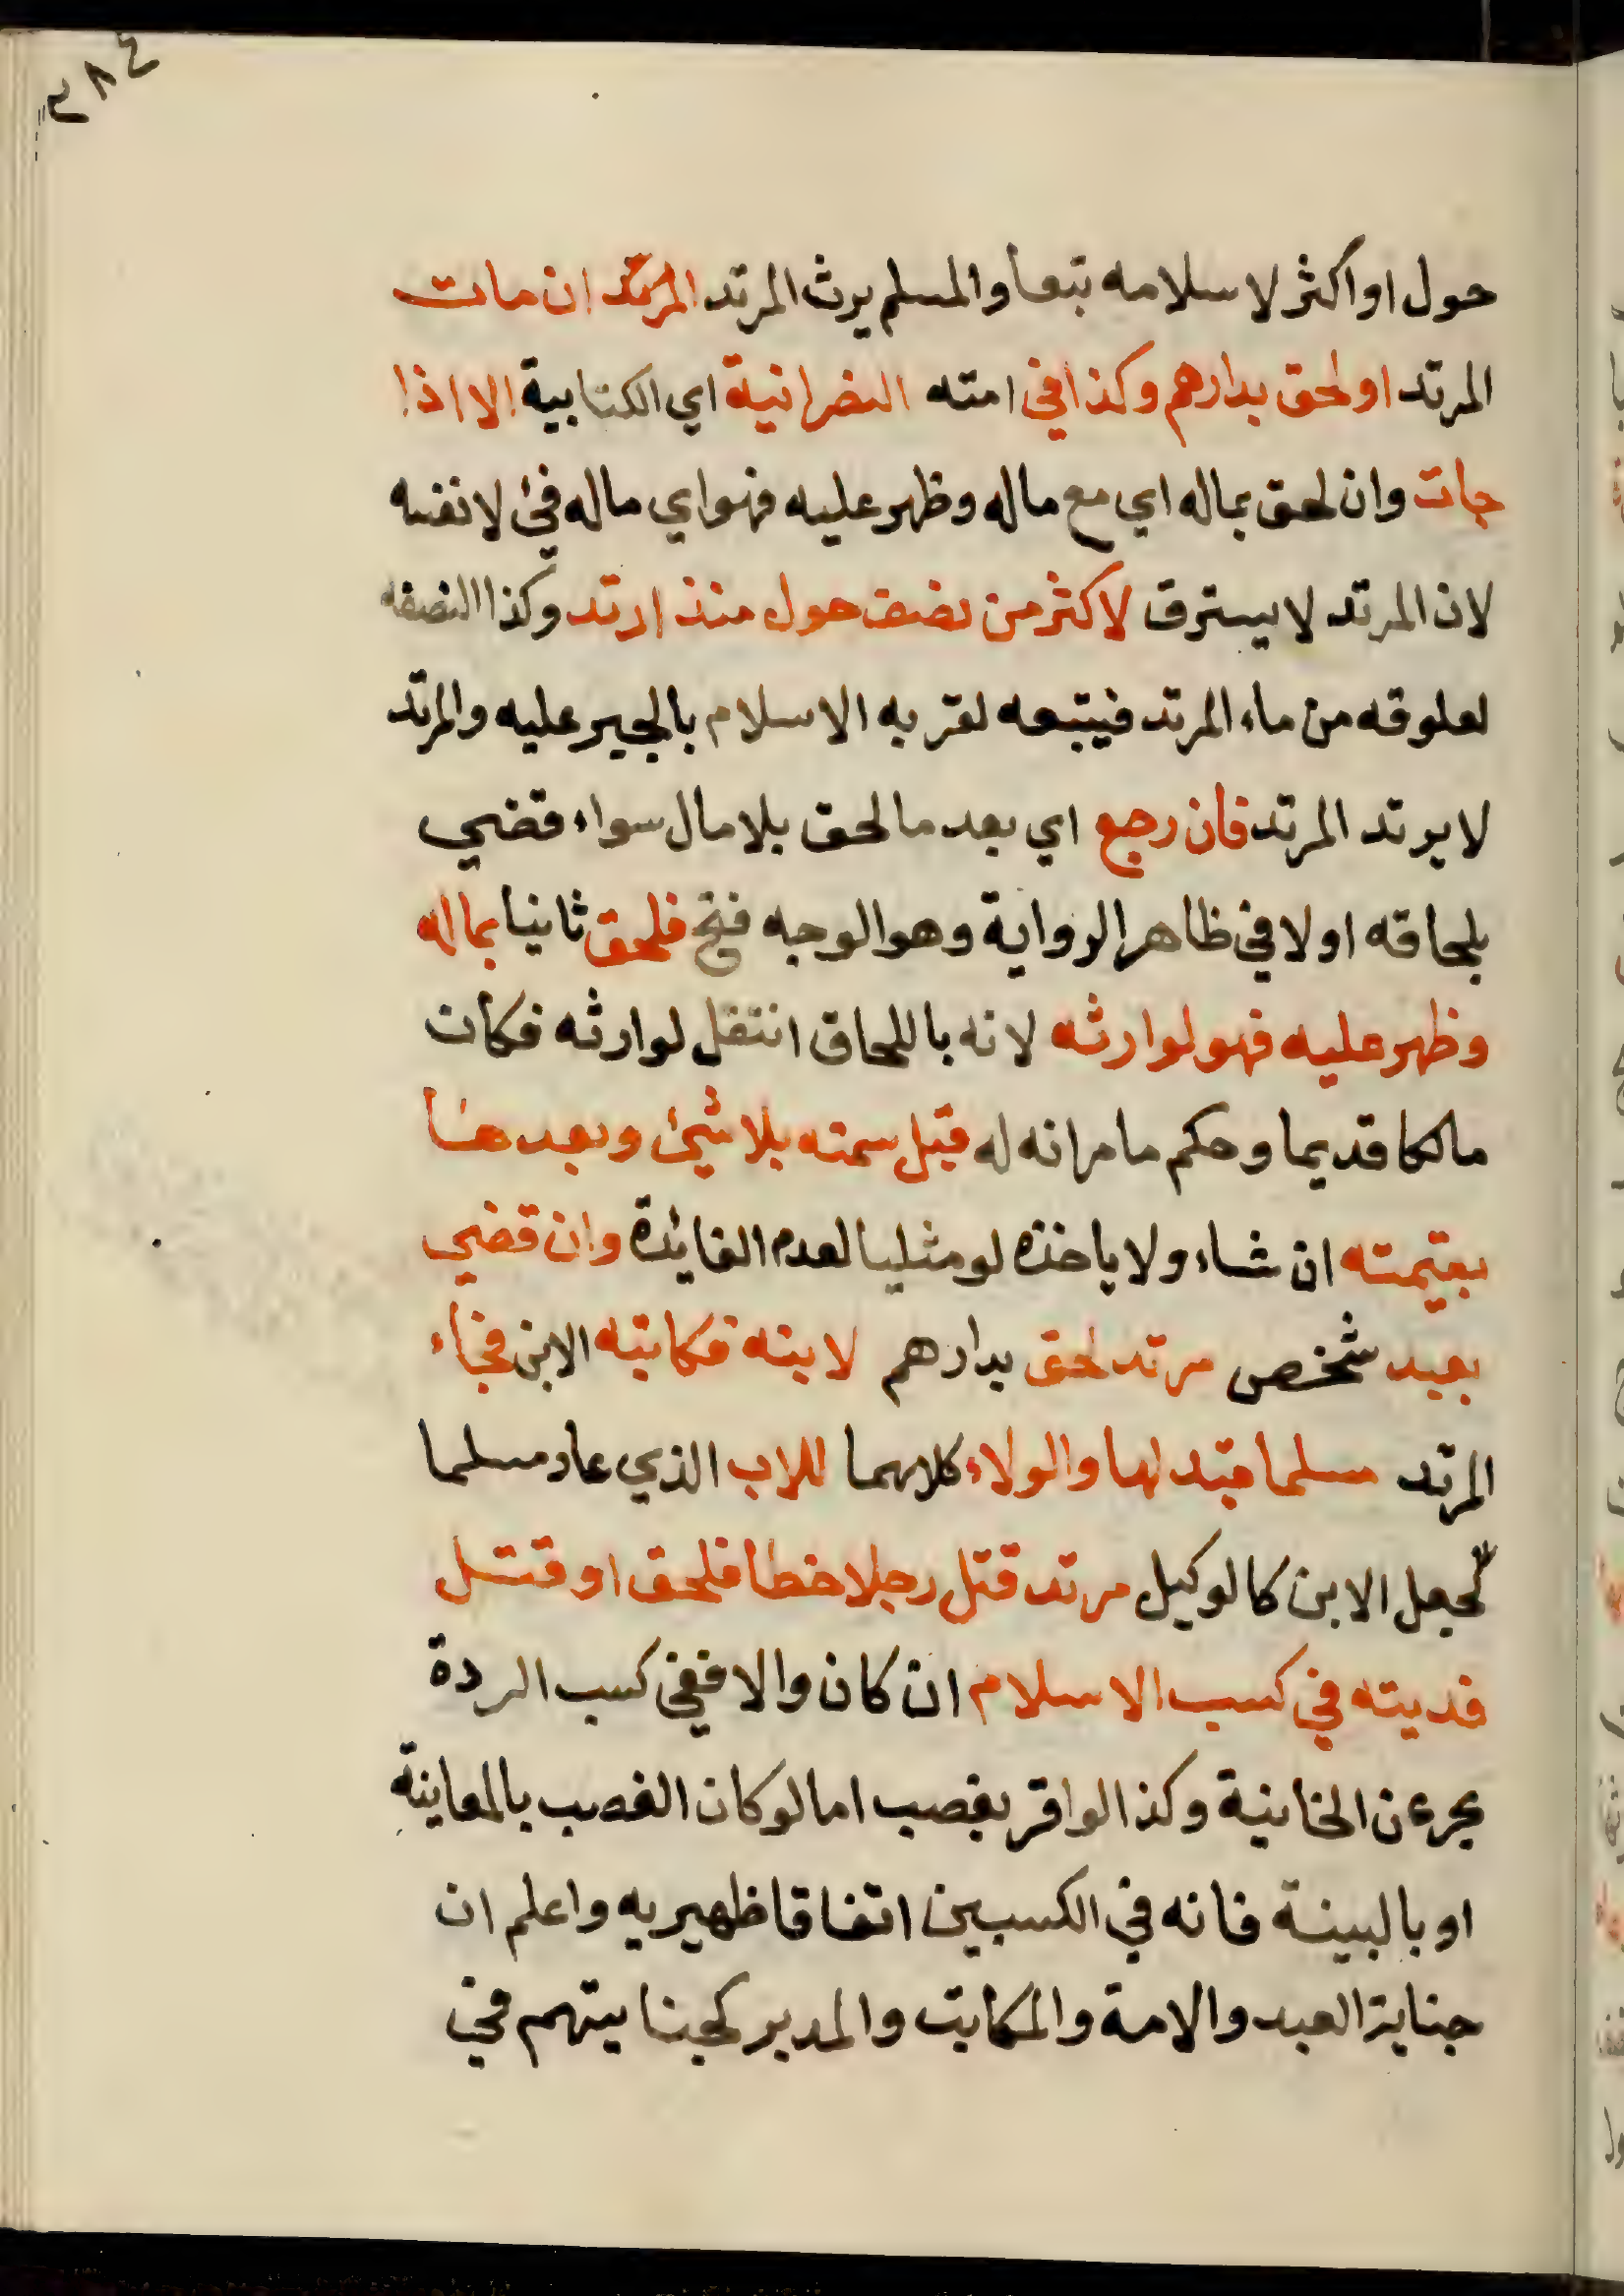 ٣٨٤
حول او اكثر لاسلامه تبعا والمسلم يرث المرتد المرتد ان مات
المرتد او لحق بدارهم وكذا في امته النصرانية اي الكتابية الا اذا
جات وان لحق بماله اي مع ماله وظهر عليه فهو اي ماله فئ لا نفسه
لان المرتد لا يسترق لاكثر من نصف حول منذ ارتد وكذا النصفه
لعلوقه من ماء المرتد فيتبعه لقربه الاسلام بالجبر عليه والمرتد
لا يرتد المرتد فان رجع اي بعد ما لحق بلا مال سواء قضي
بلحاقه اولا في ظاهر الرواية وهو الوجه فتح فلحق ثانيا بماله
وظهر عليه فهو لوارثه لانه باللحاق انتقل لوارثه فكان
مالكا قديما وحكم ما مر انه له قبل سمته بلا شئ وبعدها
بقيمته ان شاء ولا ياخذه لو مثليا لعدم الفايدة وان قضي
بعبد شخص مرتد لحق بدارهم لابنه فكاتبه الابن فجاء
المرتد مسلما فبدلها والولاء كلاهما للاب الذي عاد مسلما
لجعل الابن كالوكيل مرتد قتل رجلا خطا فلحق او قتل
فديته في كسب الاسلام ان كان والا ففي كسب الردة
بحر عن الخانية وكذا لو اقر بغصب اما لو كان الغصب بالمعاينة
او بالبينة فانه في الكسبين اتفاقا ظهيريه واعلم ان
جناية العبد والامة والمكاتب والمدبر كجنايتهم في